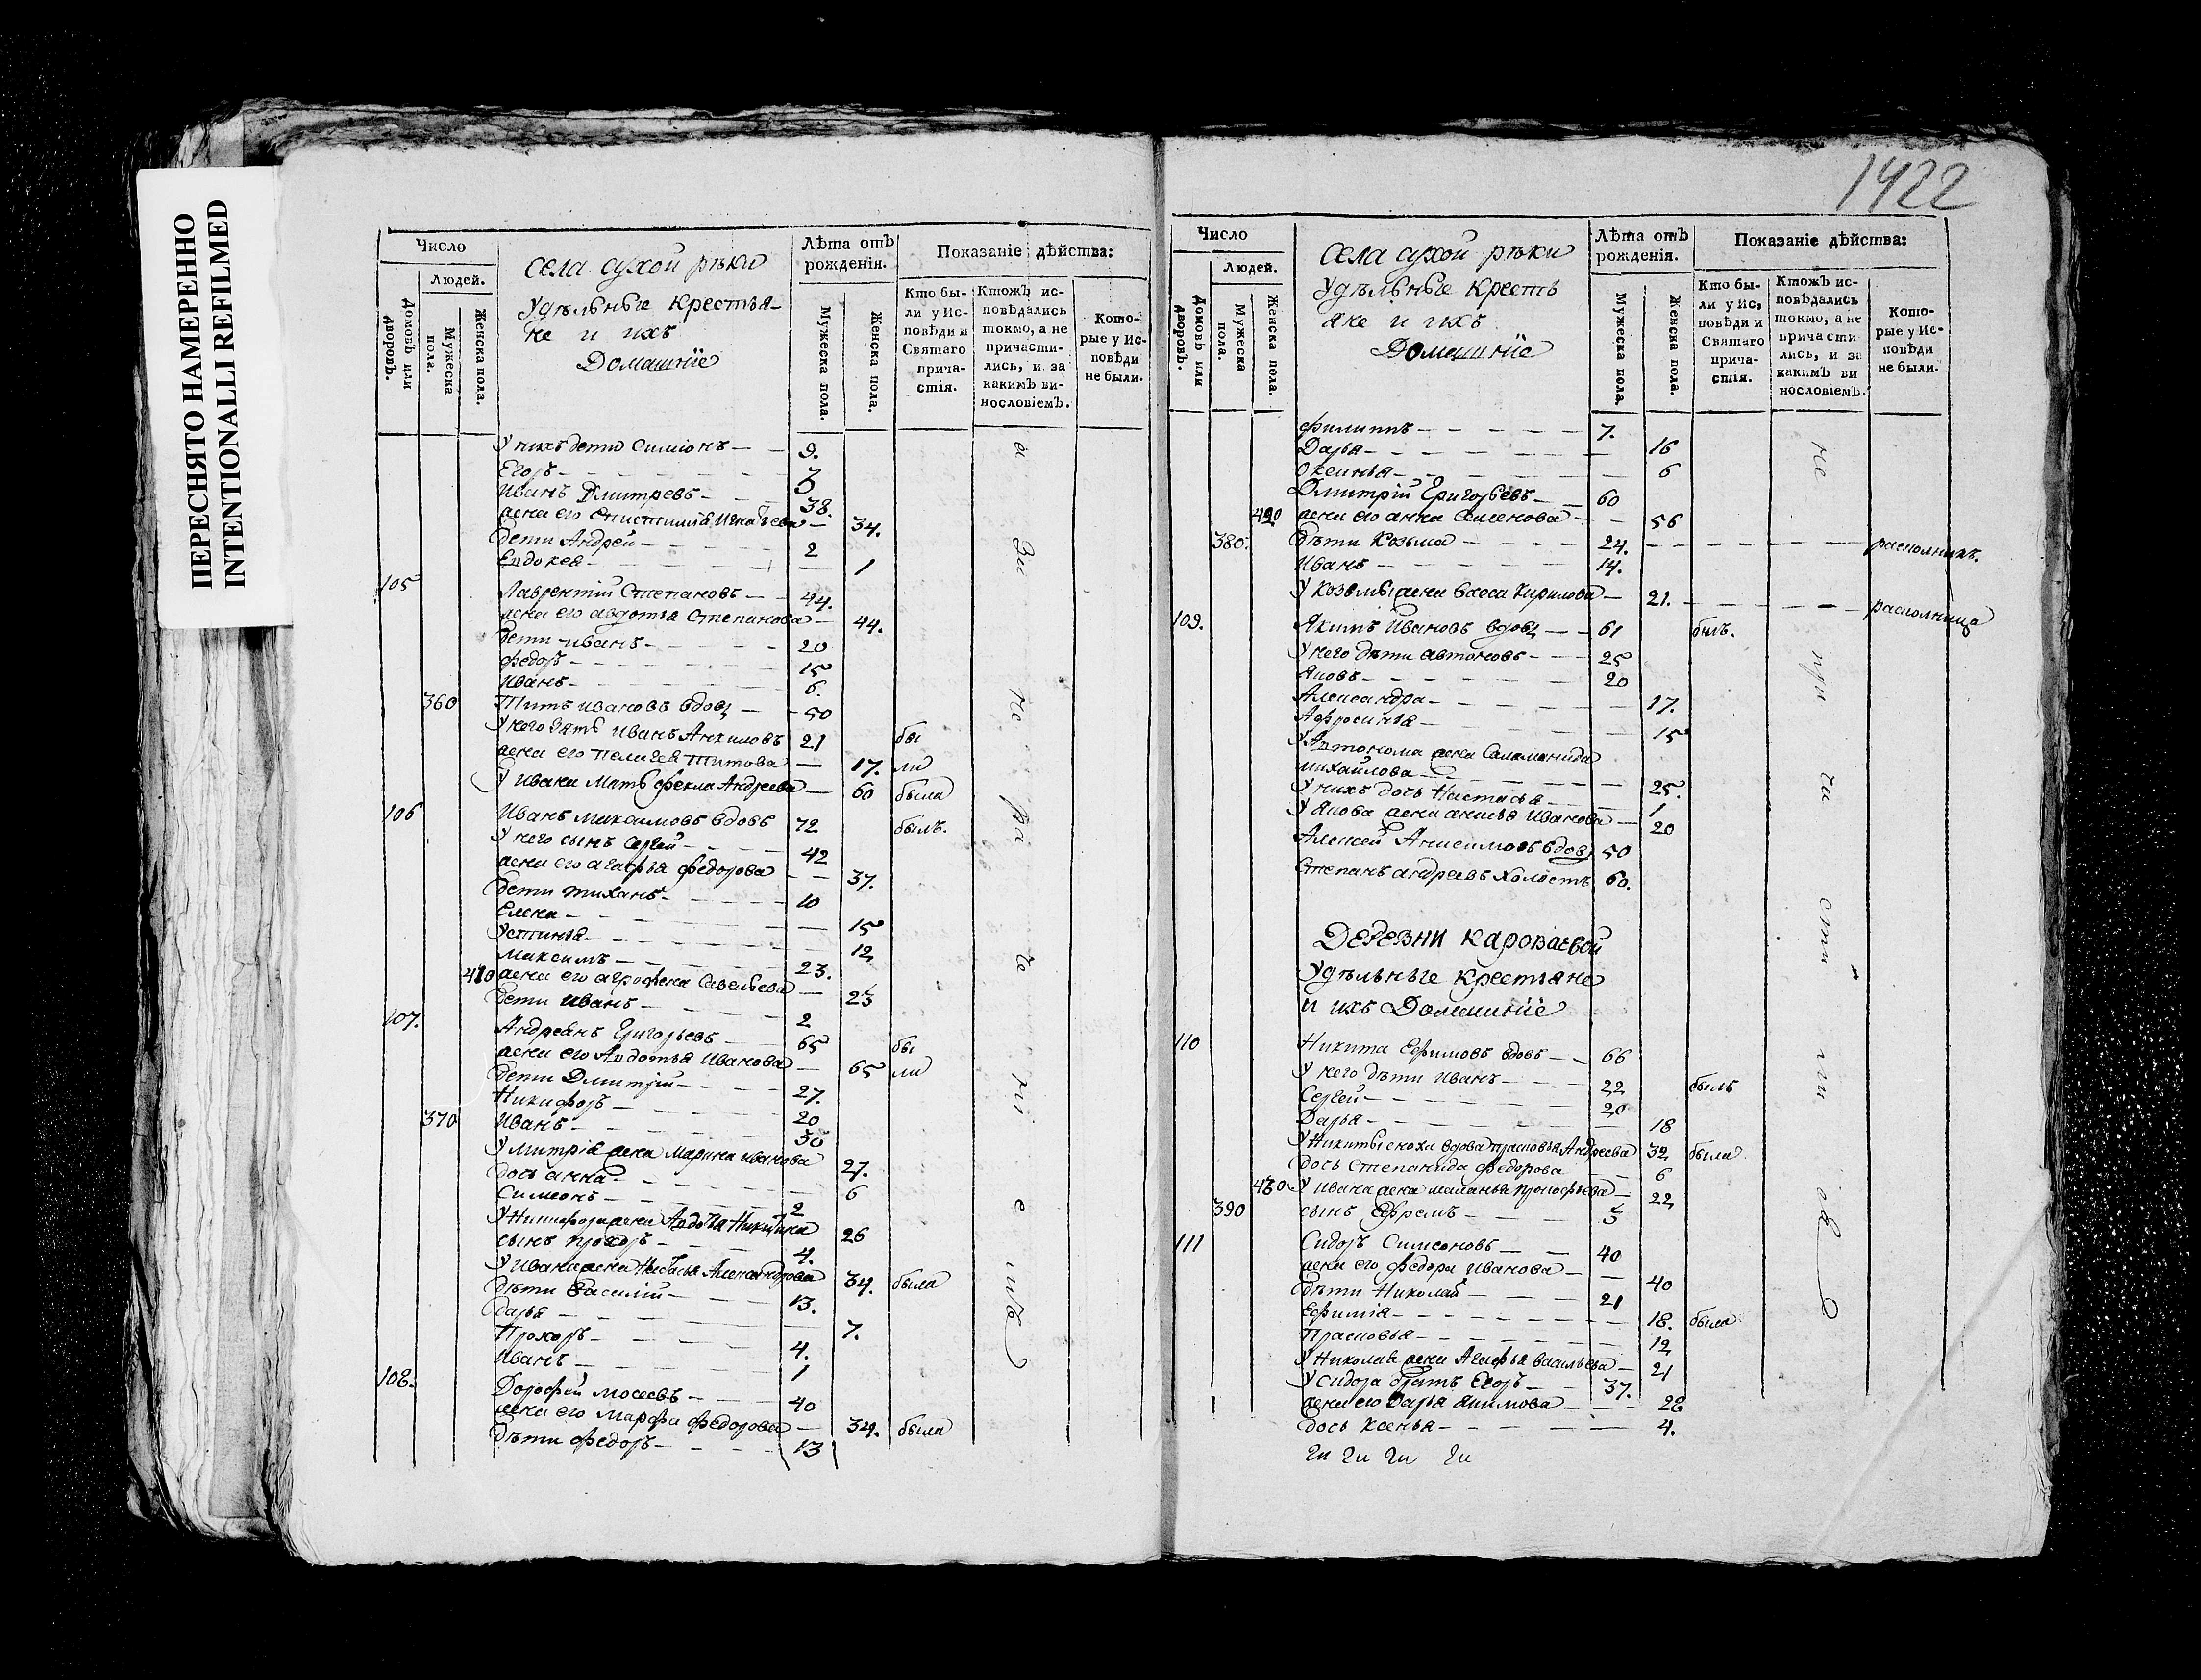 ПЕРЕСНЯТО НАМЕРЕННО
INTENTIONALLI REFILMED
Число
Людей.
Домовъ или дворовъ.
Мужеска пола.
Женска пола.
Села сухой рѣки
Удѣльные крестья-
не и ихъ
Домашнїе
Лѣта отъ рожденія.
Мужеска пола.
Женска пола.
Показаніе дѣйства:
Кто бы-
ли у Ис-
повѣди и
Святаго
прича-
стія.
Ктожъ ис-
повѣдались
токмо, а не
причасти-
лись, и за
какимъ ви-
нословіемъ.
Кото-
рые у Ис-
повѣди
не были.
У нихъ дети Симионъ 9.
Егоръ 3
Иванъ Дмитревъ 38.
жена его 34.
дети Андрей 2
Евдокея 1
105 Лаврентий Степановъ 44.
жена его авдотья Степанова 44.
дети иванъ 20
федоръ 15
Иванъ 6.
360 Титъ ивановъ вдовц 50
У него зять Иванъ Анкиловъ 21 бы
жена его Пелагея Титова 17. ли
У Ивана мать фекла Андреева 60 была
106 Иванъ Максимовъ вдовъ 72 былъ.
У него сынъ Сергей 42
жена его агафья федорова 37.
дети тиханъ 10
Елена 15
Устинья 12
Максимъ 23.
410 жена его аграфена Савельева 23
дети иванъ 2
107. Андреянъ Григорьевъ 65 бы
жена его Авдотья Иванова 65 ли
дети Дмитрій 27.
Никифоръ 20
370 Иванъ 30
У митрія жена Марина иванова 27.
дочь анна 6
Симеонъ 2
У Никифора жена Авдотья Никитина 26
сынъ прохоръ 4.
У Ивана жена Настасья Александрова 34. была
дѣти Василій 13.
дарья 7.
Прохоръ 4.
Иванъ 1
108. Дорофей Мосеевъ 40
жена его Марфа федорова 34. была
дѣти федоръ 13
1422
Число
Людей.
Домовъ или дворовъ.
Мужеска пола.
Женска пола.
Села сухой рѣки
Удѣльные Кресть
яне и ихъ
Домашнїе
Лѣта отъ рожденія.
Мужеска пола.
Женска пола.
Показаніе дѣйства:
Кто бы-
ли у Ис,
повѣди и
Святаго
прича-
стія.
Ктожъ ис-
повѣдались
токмо, а не
причасти
лись, и за
какимъ ви
нословіемъ.
Кото-
рые у Ис-
повѣди
не были.
филиппъ 7.
Дарья 16
Оксинья 6
Дмитрій Григорьевъ 60
420 жена его анна Семенова 56
380. дѣти Козьма 24. расколникъ.
Иванъ 14.
У Козьмы жена васса Кирилова 21. расколница
109. Якимъ Ивановъ вдовц 61 былъ.
У него дѣти автономъ 25
Яковъ 20
Александра 17.
Афросинья 15
У Автонома жена Саламанида
Михайлова 25.
У нихъ дочь Настасья 1
У Якова жена анисья Иванова 20
Алексей Анисимовъ вдовц 50
Степанъ андреевъ холостъ 60.
Деревни Кароваевой
Удѣльные крестьяне
и ихъ Домашнїе
110 Никита Ефимовъ вдовъ 66
У него дѣти Иванъ 22 былъ
Сергей 20
Дарья 18
У Никиты сноха вдова прасковья Андреева 32 была
дочь Степанида федорова 6
430 У ивана жена маланья прокофьева 22
390 сынъ Ефремъ 5
111 Сидоръ Симеоновъ 40
жена его федора Иванова 40
дѣти Николай 21
Ефимія 18. была
Прасковья 12
У Николая жена Агафья васильева 21
У Сидора братъ Егоръ 37.
жена его Дарья Якимова 28
дочь ксенья 4.